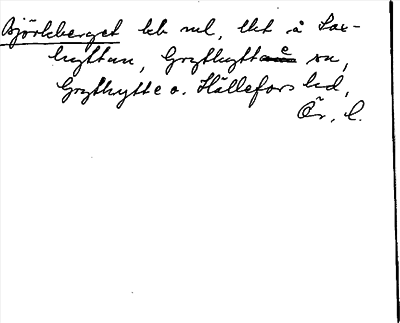 Björkberget lkb rul, tkt å Sax-
hyttan, Grythytte sn,
Grythytte o. Hällefors hd,
Ör. l.